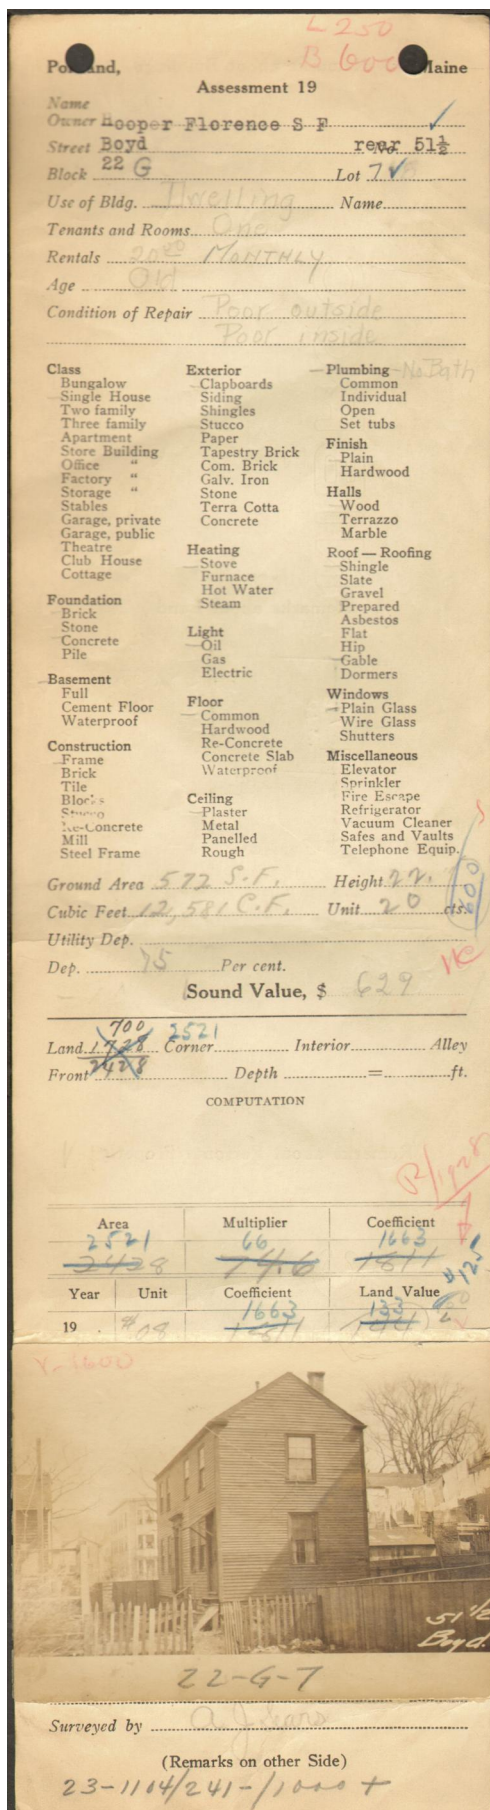 L 250
B 600
Portland, Maine
Assessment 19
Name
Owner Hooper Florence S F
Street Boyd No. rear 51½
Block 22 G Lot 7
Use of Bldg. Dwelling Name
Tenants and Rooms One
Rentals 20.00 MONTHLY
Age Old
Condition of Repair Poor outside
Poor inside
Class
Bungalow
Single House
Two family
Three family
Apartment
Store Building
Office "
Factory "
Storage "
Stables
Garage, private
Garage, public
Theatre
Club House
Cottage
Foundation
Brick
Stone
Concrete
Pile
Basement
Full
Cement Floor
Waterproof
Construction
Frame
Brick
Tile
Blocks
Stucco
Re-Concrete
Mill
Steel Frame
Exterior
Clapboards
Siding
Shingles
Stucco
Paper
Tapestry Brick
Com. Brick
Galv. Iron
Stone
Terra Cotta
Concrete
Heating
Stove
Furnace
Hot Water
Steam
Light
Oil
Gas
Electric
Floor
Common
Hardwood
Re-Concrete
Concrete Slab
Waterproof
Ceiling
Plaster
Metal
Panelled
Rough
Plumbing - No Bath
Common
Individual
Open
Set tubs
Finish
Plain
Hardwood
Halls
Wood
Terrazzo
Marble
Roof — Roofing
Shingle
Slate
Gravel
Prepared
Asbestos
Flat
Hip
Gable
Dormers
Windows
Plain Glass
Wire Glass
Shutters
Miscellaneous
Elevator
Sprinkler
Fire Escape
Refrigerator
Vacuum Cleaner
Safes and Vaults
Telephone Equip.
600
Ground Area 572 S.F. Height 22.
Cubic Feet 12,581 C.F. Unit 20 cts.
Utility Dep.
Dep. 75 Per cent.
Sound Value, $ 629
700 2521
Land 1728 Corner Interior Alley
Front 2428 Depth = ft.
COMPUTATION
R/1928
Area Multiplier Coefficient
2521 66 1663
2428 74.6 1811
$125
Year Unit Coefficient Land Value
1663 133
19 $.08 1811
V-1600
51 1/2
Boyd.
22-G-7
Surveyed by
(Remarks on other Side)
23-1104/241-/1000 +